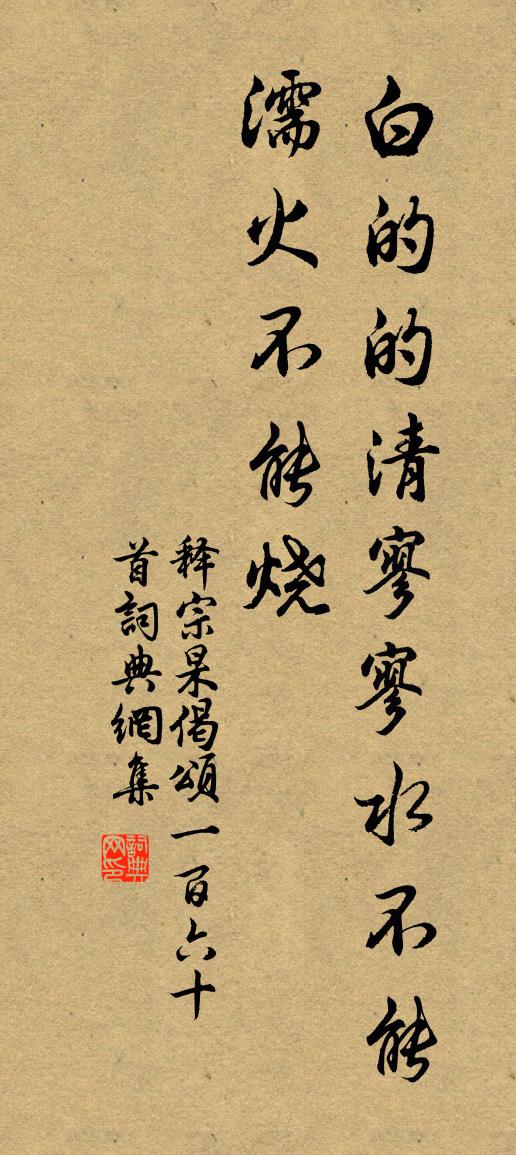 白的的清寥寥水不能
濡火不能烧
释宗杲偈頌一百六十
首詞典網集
詞典
网印